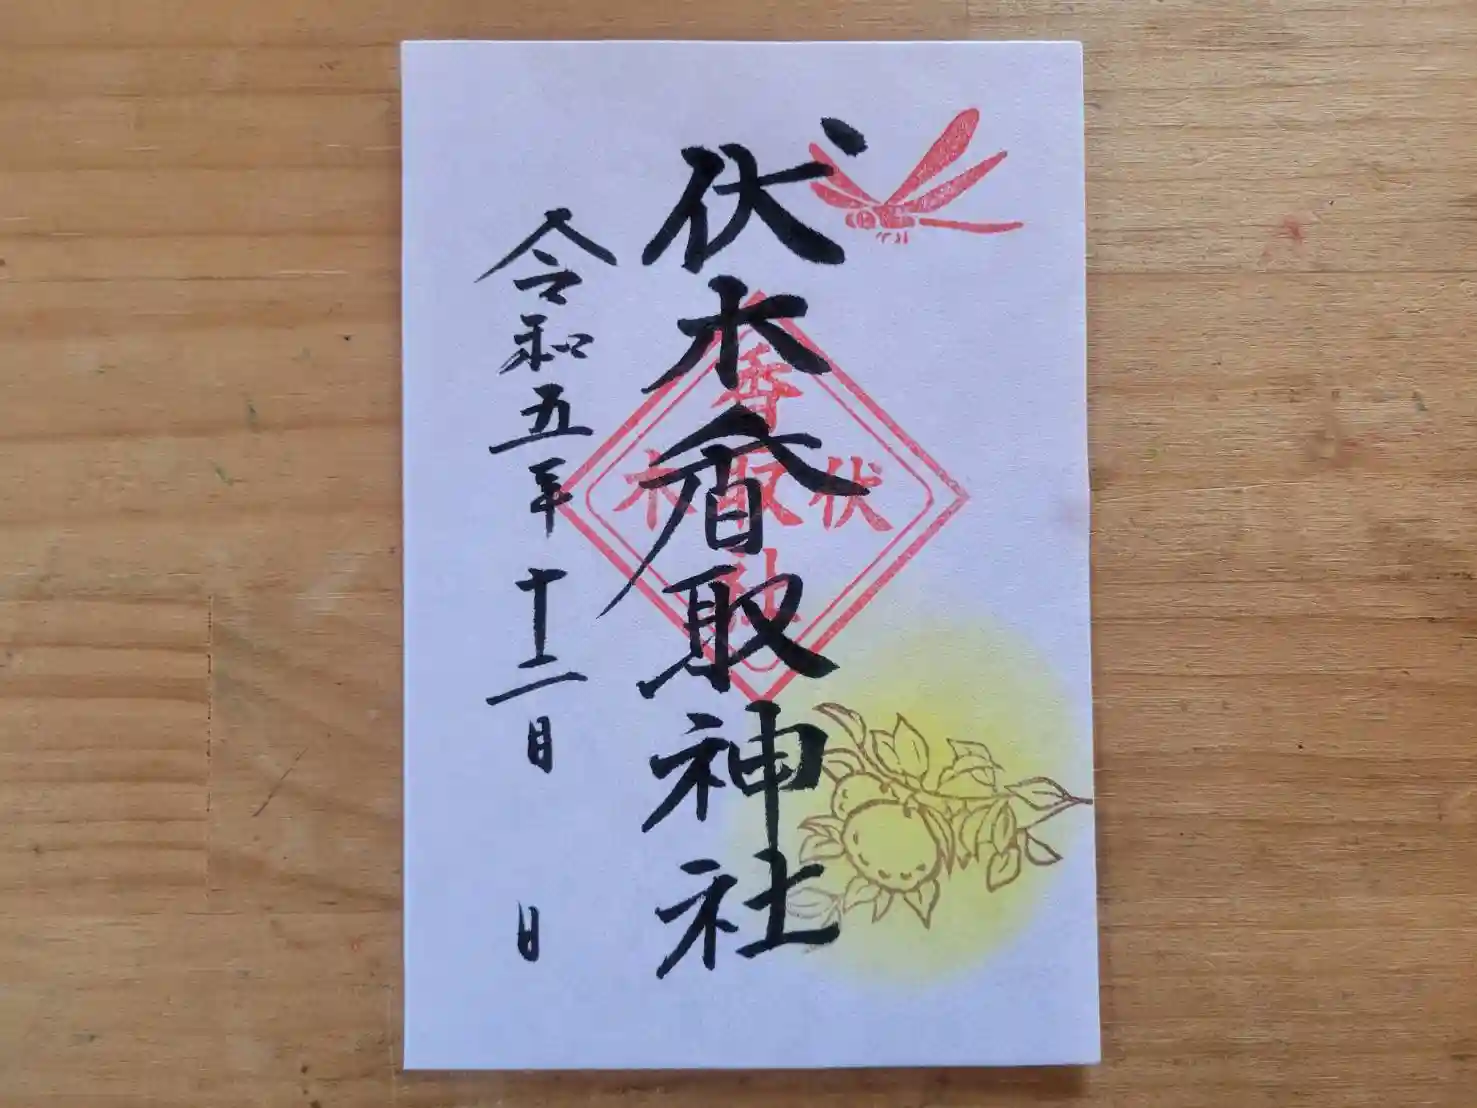 伏木香取神社
令和五年十二月 日
伏木香取神社